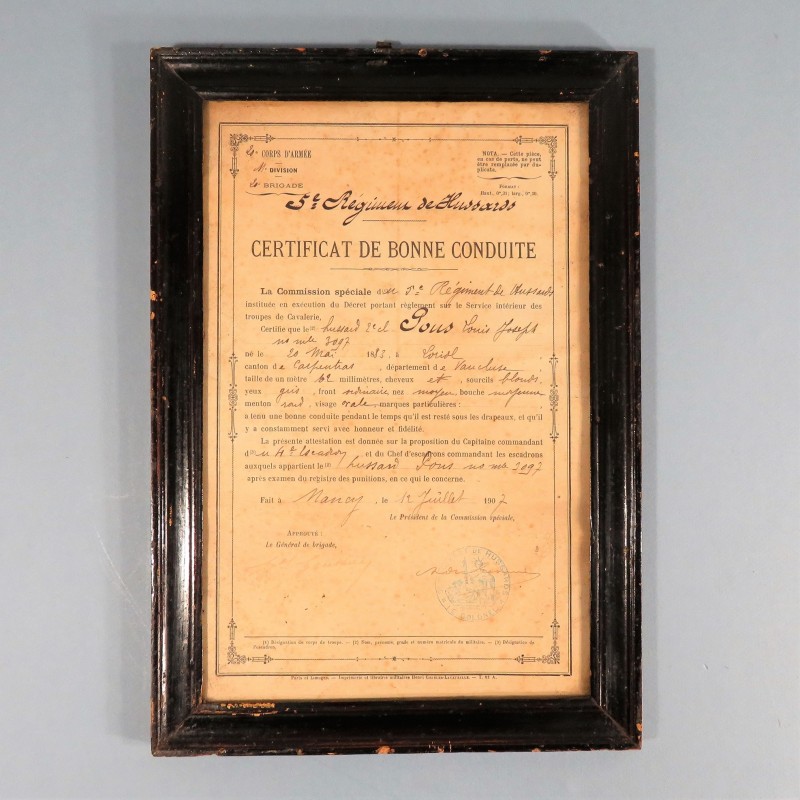 CORPS D'ARMÉE
DIVISION
BRIGADE
NOTA. — Cette pièce, en cas de perte, ne peut être remplacée par duplicata.
Format :
Haut. 0m,31; larg. 0m,20.
5e Régiment de Hussards
CERTIFICAT DE BONNE CONDUITE
La Commission spéciale du 5e Régiment de Hussards
instituée en exécution du Décret portant règlement sur le Service intérieur des
troupes de Cavalerie,
Certifie que le (2) hussard 2e cl Pons Louis Joseph
no mle 3097
né le 20 Mai 1883, à Loriol
canton de Carpentras, département de Vaucluse
taille de un mètre 62 millimètres, cheveux et, sourcils blonds
yeux gris, front ordinaire nez moyen, bouche moyenne
menton rond, visage ovale, marques particulières :
a tenu une bonne conduite pendant le temps qu'il est resté sous les drapeaux, et qu'il
y a constamment servi avec honneur et fidélité.
La présente attestation est donnée sur la proposition du Capitaine commandant
du 4e Escadron et du Chef d'escadrons commandant les escadrons
auxquels appartient le (2) hussard Pons no mle 3097
après examen du registre des punitions, en ce qui le concerne.
Fait à Nancy, le 12 Juillet 1907
Le Président de la Commission spéciale,
APPROUVÉ :
Le Général de brigade,
(1) Désignation du corps de troupe. — (2) Nom, prénoms, grade et numéro matricule du militaire. — (3) Désignation de
l'escadron.
Paris et Limoges. — Imprimerie et librairie militaires Henri CHARLES-LAVAUZELLE.